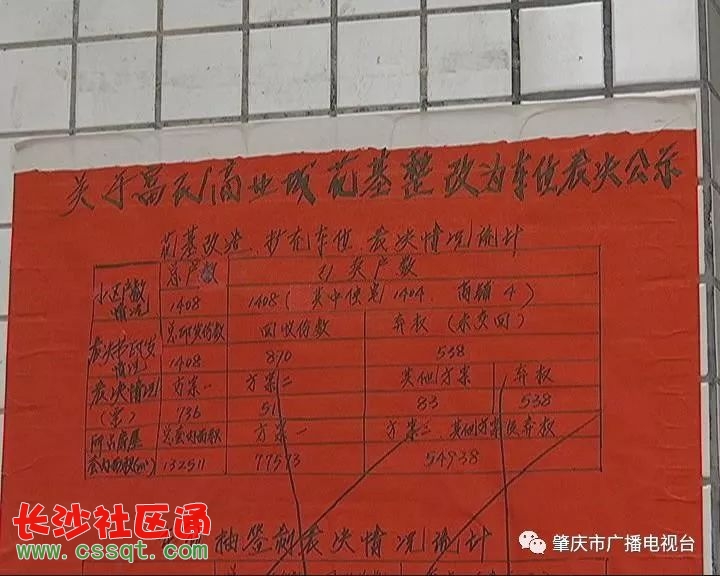 关于富民商业城花基整改为车位表决公示
花基改造、扩充车位、表决情况统计
小区户数情况 总户数 归类户数
1408 1408(其中住宅1404、商铺4)
表决书印发情况 总印发份数 回收份数 弃权(未交回)
1408 870 538
表决情况(票) 方案一 方案二 其他方案 弃权
736 51 83 538
所占房屋套内面积(m²) 总套内面积 方案一 方案二、其他方案及弃权
132511 77573 54938
抽签制表决情况统计
长沙社区通
www.cssqt.com
肇庆市广播电视台